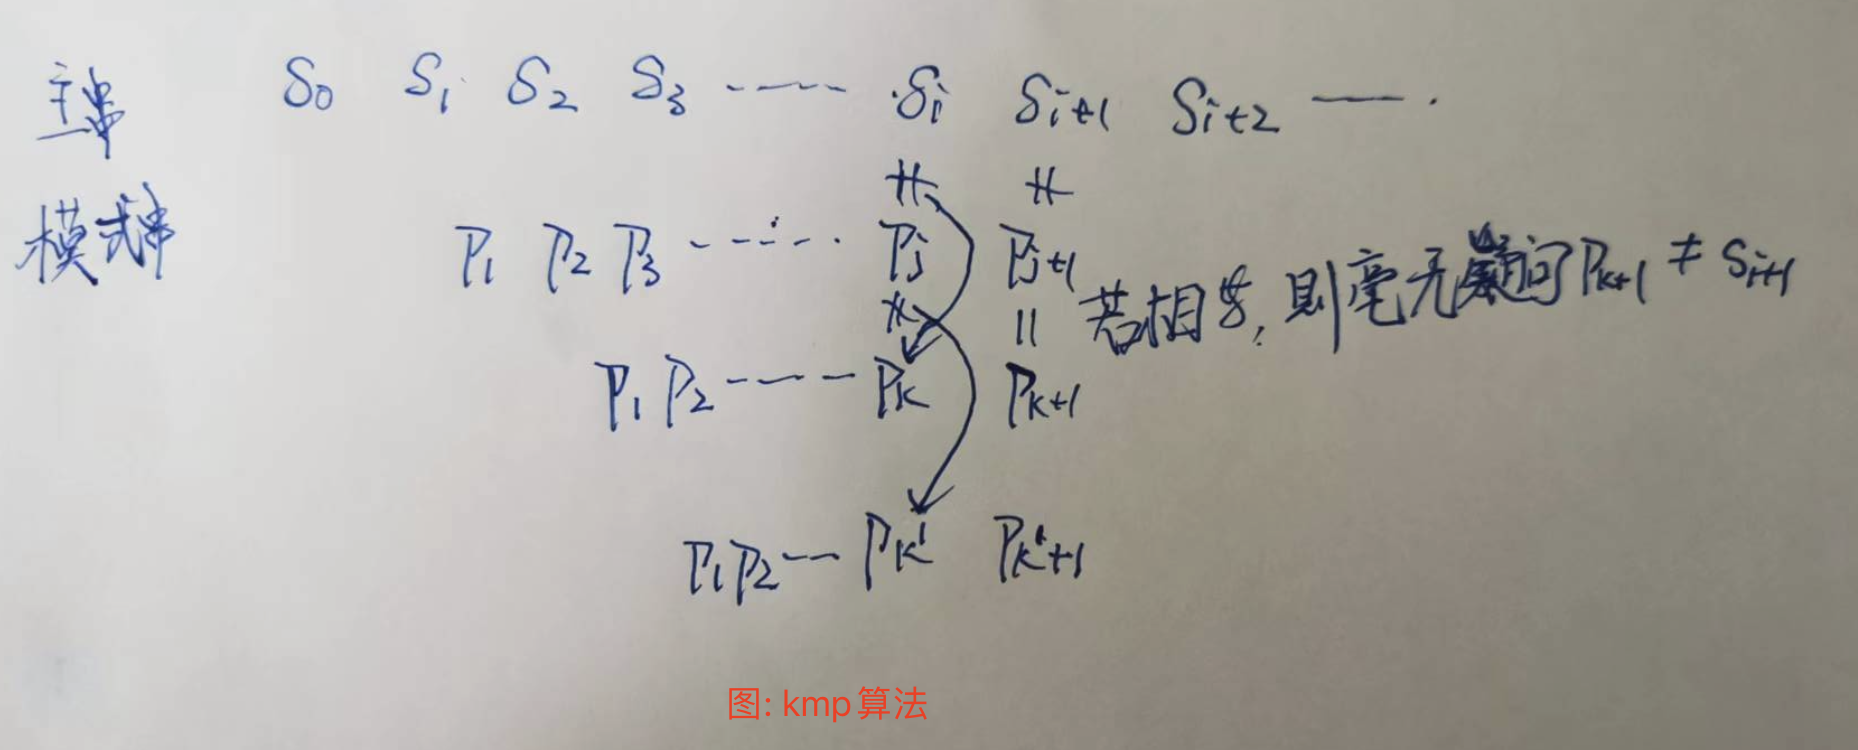 主串 S0 S1 S2 S3 ----- Si Si+1 Si+2 —— .
\\ \\
模式串 P1 P2 P3 ------ Pj Pj+1
\\ || 若相等,则毫无疑问 Pk+1 ≠ Si+1
P1 P2 ---- Pk Pk+1
P1 P2 -- Pk' Pk'+1
图: kmp算法